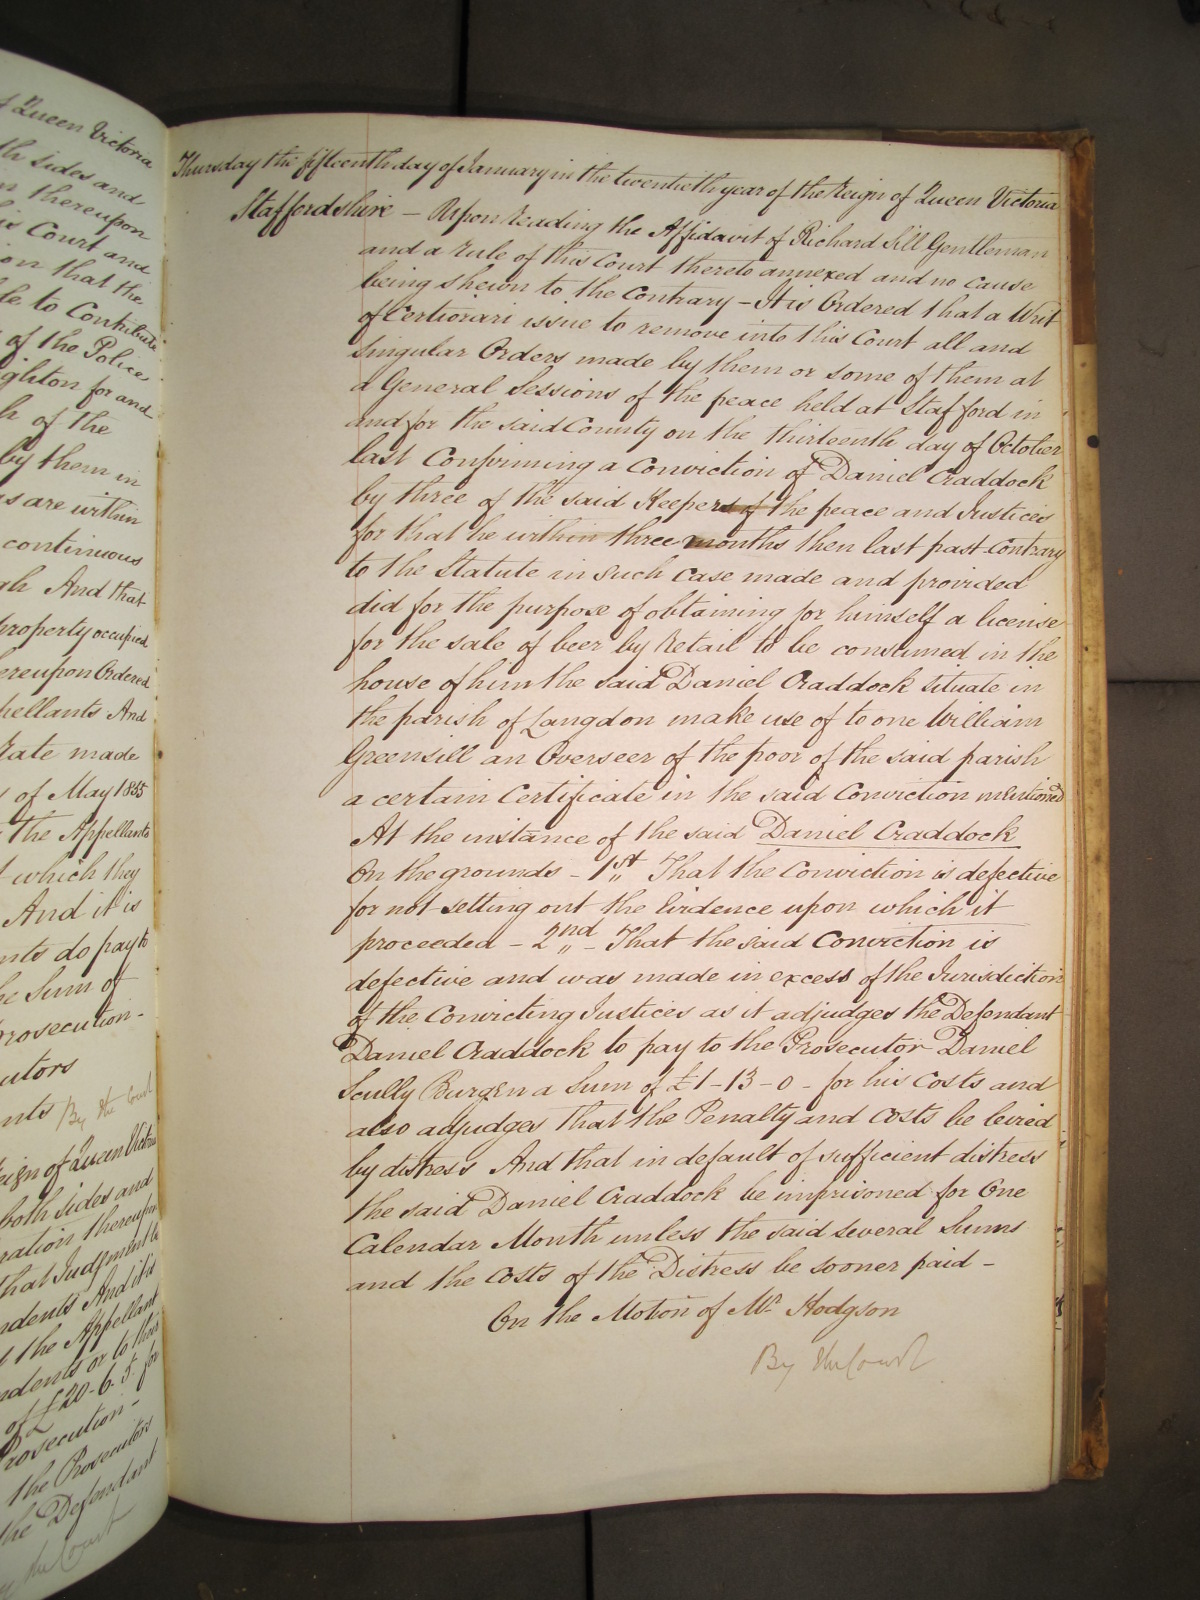 of Queen Victoria
th sides and
n thereupon
is Court and
on that the
le to Contribute
of the Police
ighton for and
h of the
by them in
s are within
continuous
gh And that
property occupied
ereupon Ordered
pellants And
Rate made
of May 1855
the Appellants
t which they
And it is
nts do pay to
he Sum of
Prosecution -
utors
nts By the Court
Reign of Queen Victoria
both sides and
ration thereupon
that Judgment be
ndents And it is
t the Appellant
ndents or to their
of £20-6-5 for
Prosecution -
the Prosecutors
the Defendant
By the Court
Thursday the fifteenth day of January in the twentieth year of the Reign of Queen Victoria
Staffordshire - Upon reading the Affidavit of Richard Sill Gentleman
and a rule of this Court thereto annexed and no cause
being shewn to the Contrary - It is Ordered that a Writ
of Certiorari issue to remove into this Court all and
Singular Orders made by them or some of them at
a General Sessions of the peace held at Stafford in
and for the said County on the thirteenth day of October
last Confirming a Conviction of Daniel Craddock
by three of the said Keepers of the peace and Justices
for that he within three months then last past contrary
to the Statute in such case made and provided
did for the purpose of obtaining for himself a license
for the sale of beer by Retail to be consumed in the
house of him the said Daniel Craddock situate in
the parish of Langdon make use of to one William
Greensill an Overseer of the poor of the said parish
a certain Certificate in the said Conviction mentioned
At the instance of the said Daniel Craddock
On the grounds - 1st That the Conviction is defective
for not setting out the Evidence upon which it
proceeded - 2nd - That the said Conviction is
defective and was made in excess of the Jurisdiction
of the Convicting Justices as it adjudges the Defendant
Daniel Craddock to pay to the Prosecutor Daniel
Scully Burgen a Sum of £1-13-0 - for his Costs and
also adjudges that the Penalty and Costs be levied
by distress And that in default of sufficient distress
the said Daniel Craddock be imprisoned for One
Calendar Month unless the said several Sums
and the Costs of the Distress be sooner paid -
On the Motion of Mr Hodgson
By the Court